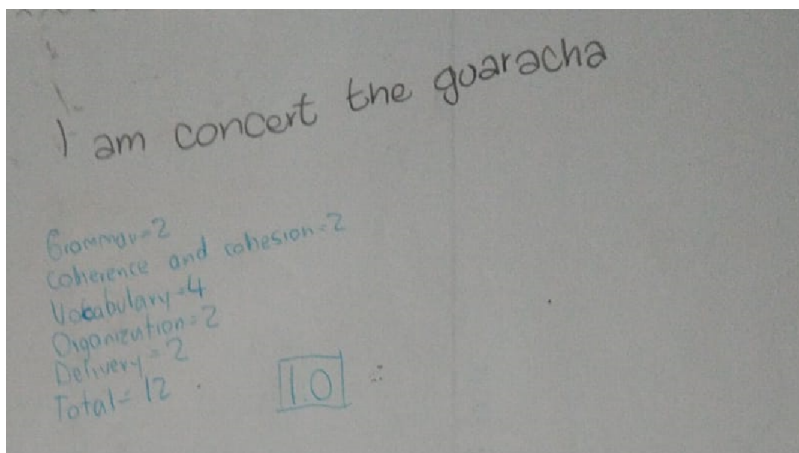 I am concert the guaracha
Grammar=2
Coherence and cohesion=2
Vocabulary=4
Organization=2
Delivery=2
Total=12
1.0